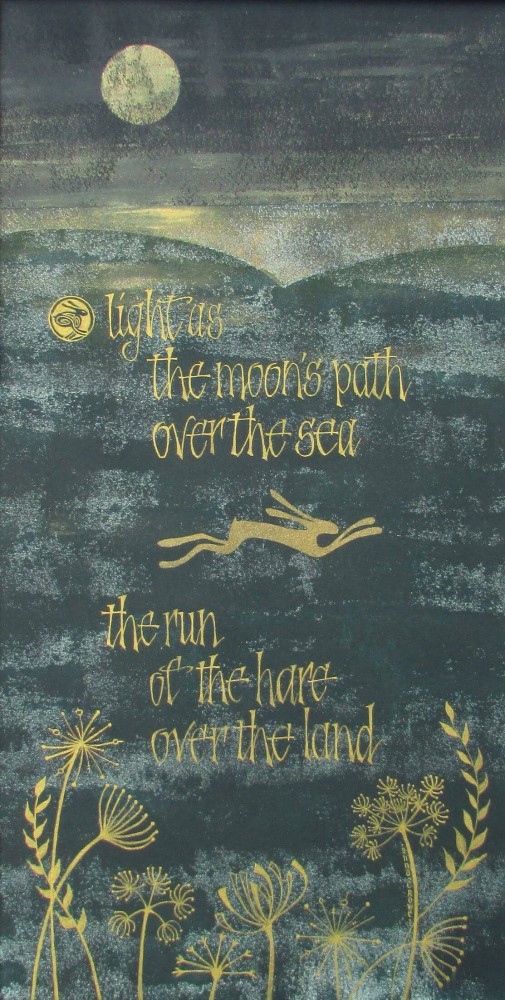 light as
the moon's path
over the sea
the run
of the hare
over the land